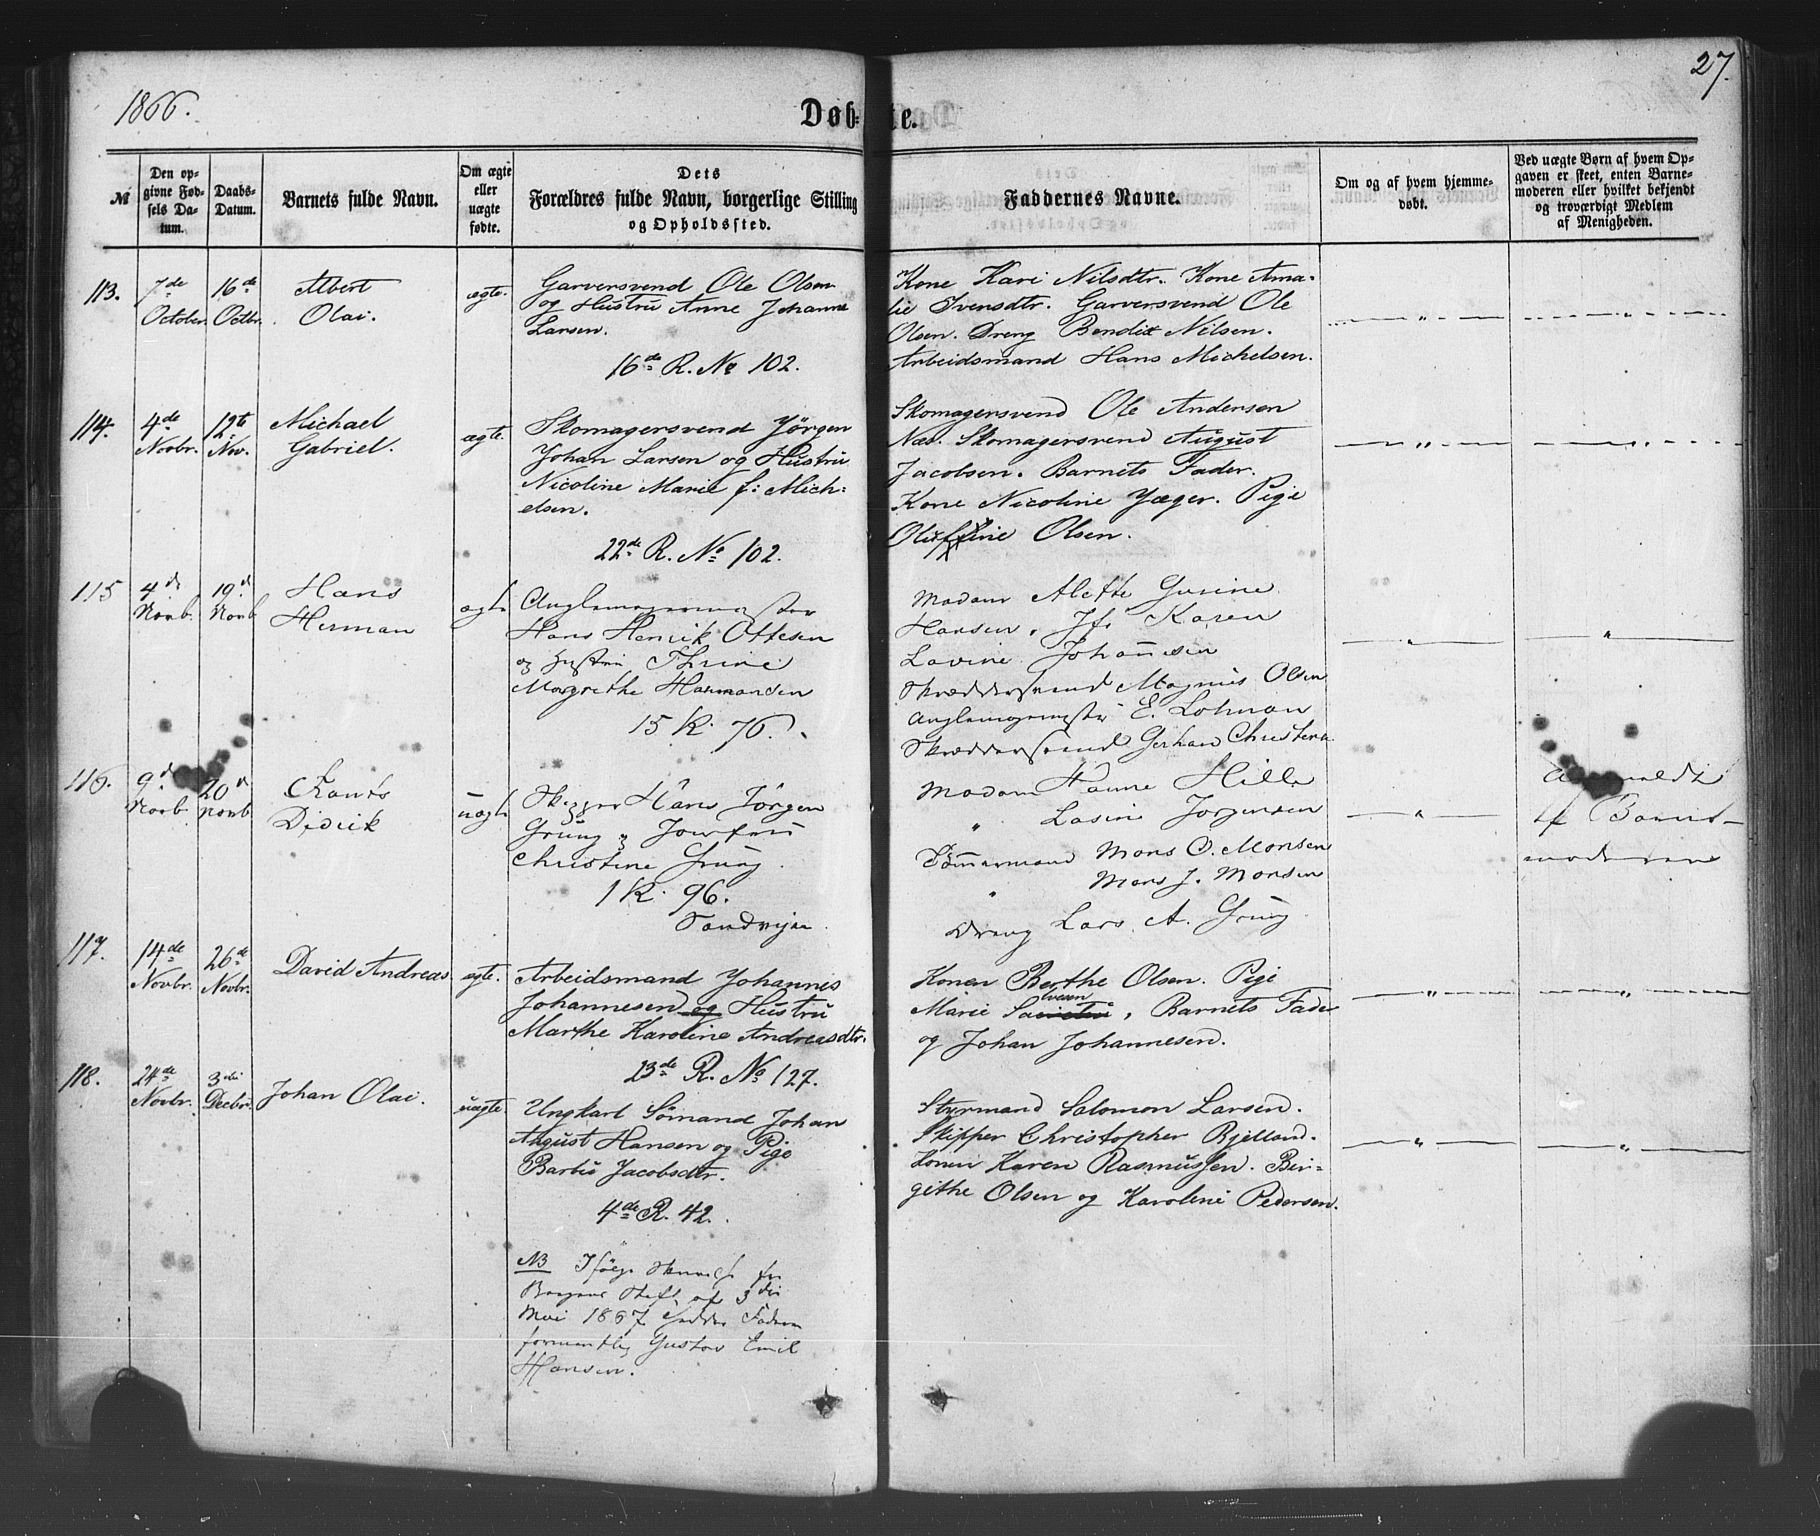 1866.
Døb- te.
27.
№
Den op-
givne Fød-
sels Da-
tum.
Daabs-
Datum.
Barnets fulde Navn.
Om ægte
eller
uægte
fødte.
Dets
Forældres fulde Navn, borgerlige Stilling
og Opholdssted.
Faddernes Navne.
Om og af hvem hjemme-
døbt.
Ved uægte Børn af hvem Op-
gaven er skeet, enten Barne-
moderen eller hvilket bekjendt
og troværdigt Medlem
af Menigheden.
113.
7de
October
16de
Octbr.
Albert
Olai.
ægte.
Garversvend Ole Olsen
og Hustru Anne Johanne
Larsen.
16de R. No 102.
Kone Kari Nilsdtr. Kone Ama-
lie Ivensdtr. Garversvend Ole
Olsen. Dreng Bendix Nilsen.
Arbeidsmand Hans Michelsen.
114.
4de
Novbr.
12te
Nov.
Michael
Gabriel.
ægte.
Skomagersvend Jørgen
Johan Larsen og Hustru
Nicoline Marie f: Mich-
elsen.
22de R. No 102.
Skomagersvend Ole Andersen
Næs. Skomagersvend August
Jacobsen. Barnets Fader.
Kone Nicoline Jæger. Pige
Oline Olsen.
115
4d
Novb.
19d
Novb
Hans
Herman
ægte
Hans Henrik Ottesen
og Hustru Thrine
Margrethe Harmansen
15 R. 76.
Madam Alette Gurine
Hansen. Jf. Karen
Lovine Johannesen
Skræddersvend Magnus Olsen
E. Lohman
Skræddersvend Gerhan Christens.
116.
9d
Novb
20d
Novb
Didrik
uægte
Skipper Hans Jørgen
Grung og Jomfru
Christine Grung.
1 R. 96.
Sandvigen.
Madam Hanne Hille
" Lasine Jørgensen
Tømmermand Mons O. Monsen
" Mons J. Monsen
Dreng Lars A. Grung
Anmeldt
af Barnets-
moderen
117.
14de
Novbr.
26de
Novbr.
David Andreas
ægte.
Arbeidsmand Johannes
Johannesen og Hustru
Marthe Karoline Andreasdtr.
23de R. No 127.
Konen Berthe Olsen. Pige
Marie Barnets Fader
og Johan Johannesen.
118.
24de
Novbr.
3die
Decbr.
Johan Olai.
uægte.
Ungkarl Sømand Johan
August Hansen og Pige
Barbro Jacobsdtr.
4de R. 42.
Styrmand Salomon Larsen.
Skipper Christopher Bjelland.
Konen Karen Rasmussen. Bir-
githe Olsen og Karoline Pedersen.
NB Ifølge Skrivelse fra
Bergens Stift af 3die
Mai 1867 hedder Faderen
formentlig Gustav Emil
Hansen.